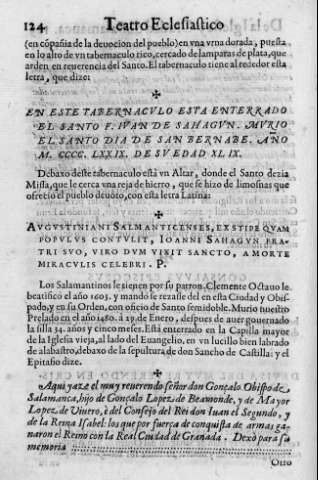 124 Teatro Eclesiastico
(en cõpañia de la deuocion del pueblo) en vna vrna dorada, puesta
en lo alto de vn tabernaculo rico, cercado de lamparas de plata, que
arden en reuerencia del Santo. El tabernaculo tiene al rededor esta
letra, que dize:
✠
EN ESTE TABERNACVLO ESTA ENTERRADO
EL SANTO F. IVAN DE SAHAGVN. MVRIO
EL SANTO DIA DE SAN BERNABE. AÑO
M. CCCC. LXXIX. DE SV EDAD XLIX.
Debaxo deste tabernaculo está vn Altar, donde el Santo dezia
Missa, que le cerca vna reja de hierro, que se hizo de limosnas que
ofrecio el pueblo deuoto, con esta letra Latina:
✠
AVGVSTINIANI SALMANTICENSES, EX STIPE QVAM
POPVLVS CONTVLIT, IOANNI SAHAGVN FRA-
TRI SVO, VIRO DVM VIXIT SANCTO, A MORTE
MIRACVLIS CELEBRI. P.
Los Salamantinos le tienen por su patron. Clemente Octauo le
beatificò el año 1603. y mandò se rezasse del en esta Ciudad y Obis-
pado, y en su Orden, con oficio de Santo semidoble. Murio nuestro
Prelado en el año 1480. à 19. de Enero, despues de auer gouernado
la silla 34. años y cinco meses. Està enterrado en la Capilla mayor
de la Iglesia vieja, al lado del Euangelio, en vn lucillo bien labrado
de alabastro, debaxo de la sepultura de don Sancho de Castilla: y el
Epitafio dize.
✠ Aqui yaze el muy reuerendo señor don Gonçalo Obispo de
Salamanca, hijo de Gonçalo Lopez de Beamonde, y de Mayor
Lopez de Viuero, è del Consejo del Rei don Iuan el Segundo, y
de la Reina Isabel: los que por fuerça de conquista de armas ga-
naron el Reino con la Real Ciudad de Granada. Dexò para su
memoria
Otro